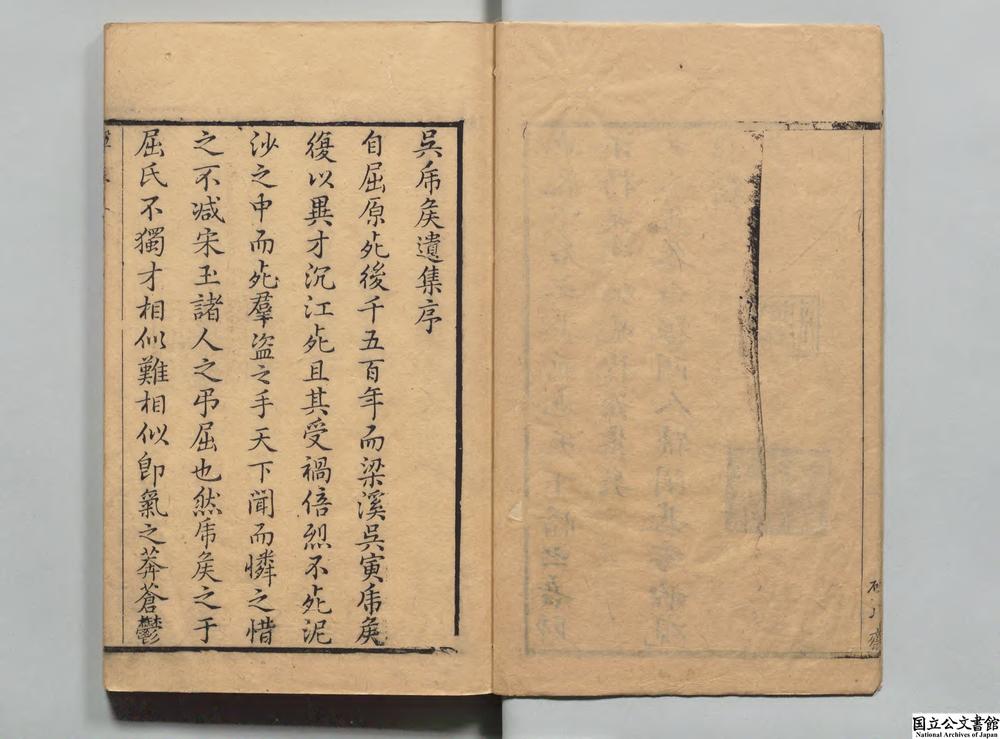 吳虎矦遺集序
自屈原死後千五百年而梁溪吳寅虎矦
復以異才沉江死且其受禍倍烈不死泥
沙之中而死羣盜之手天下聞而憐之惜
之不減宋玉諸人之弔屈也然虎矦之于
屈氏不獨才相似難相似卽氣之莽蒼鬱
国立公文書館
National Archives of Japan